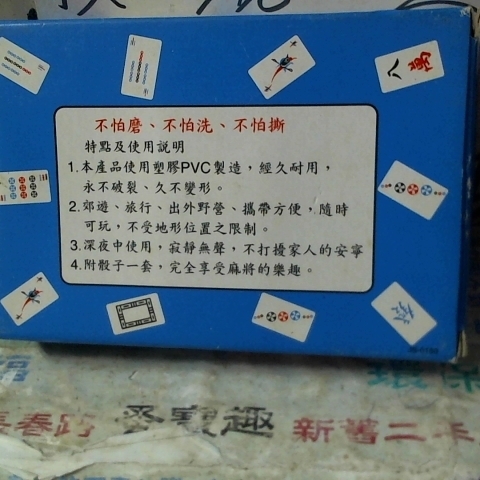 八萬
不怕磨、不怕洗、不怕撕
特點及使用說明
1.本產品使用塑膠PVC製造，經久耐用，
永不破裂、久不變形。
2.郊遊、旅行、出外野營、攜帶方便，隨時
可玩，不受地形位置之限制。
3.深夜中使用，寂靜無聲，不打擾家人的安寧
4.附骰子一套，完全享受麻將的樂趣。
長春路
番寶趣
新舊二手